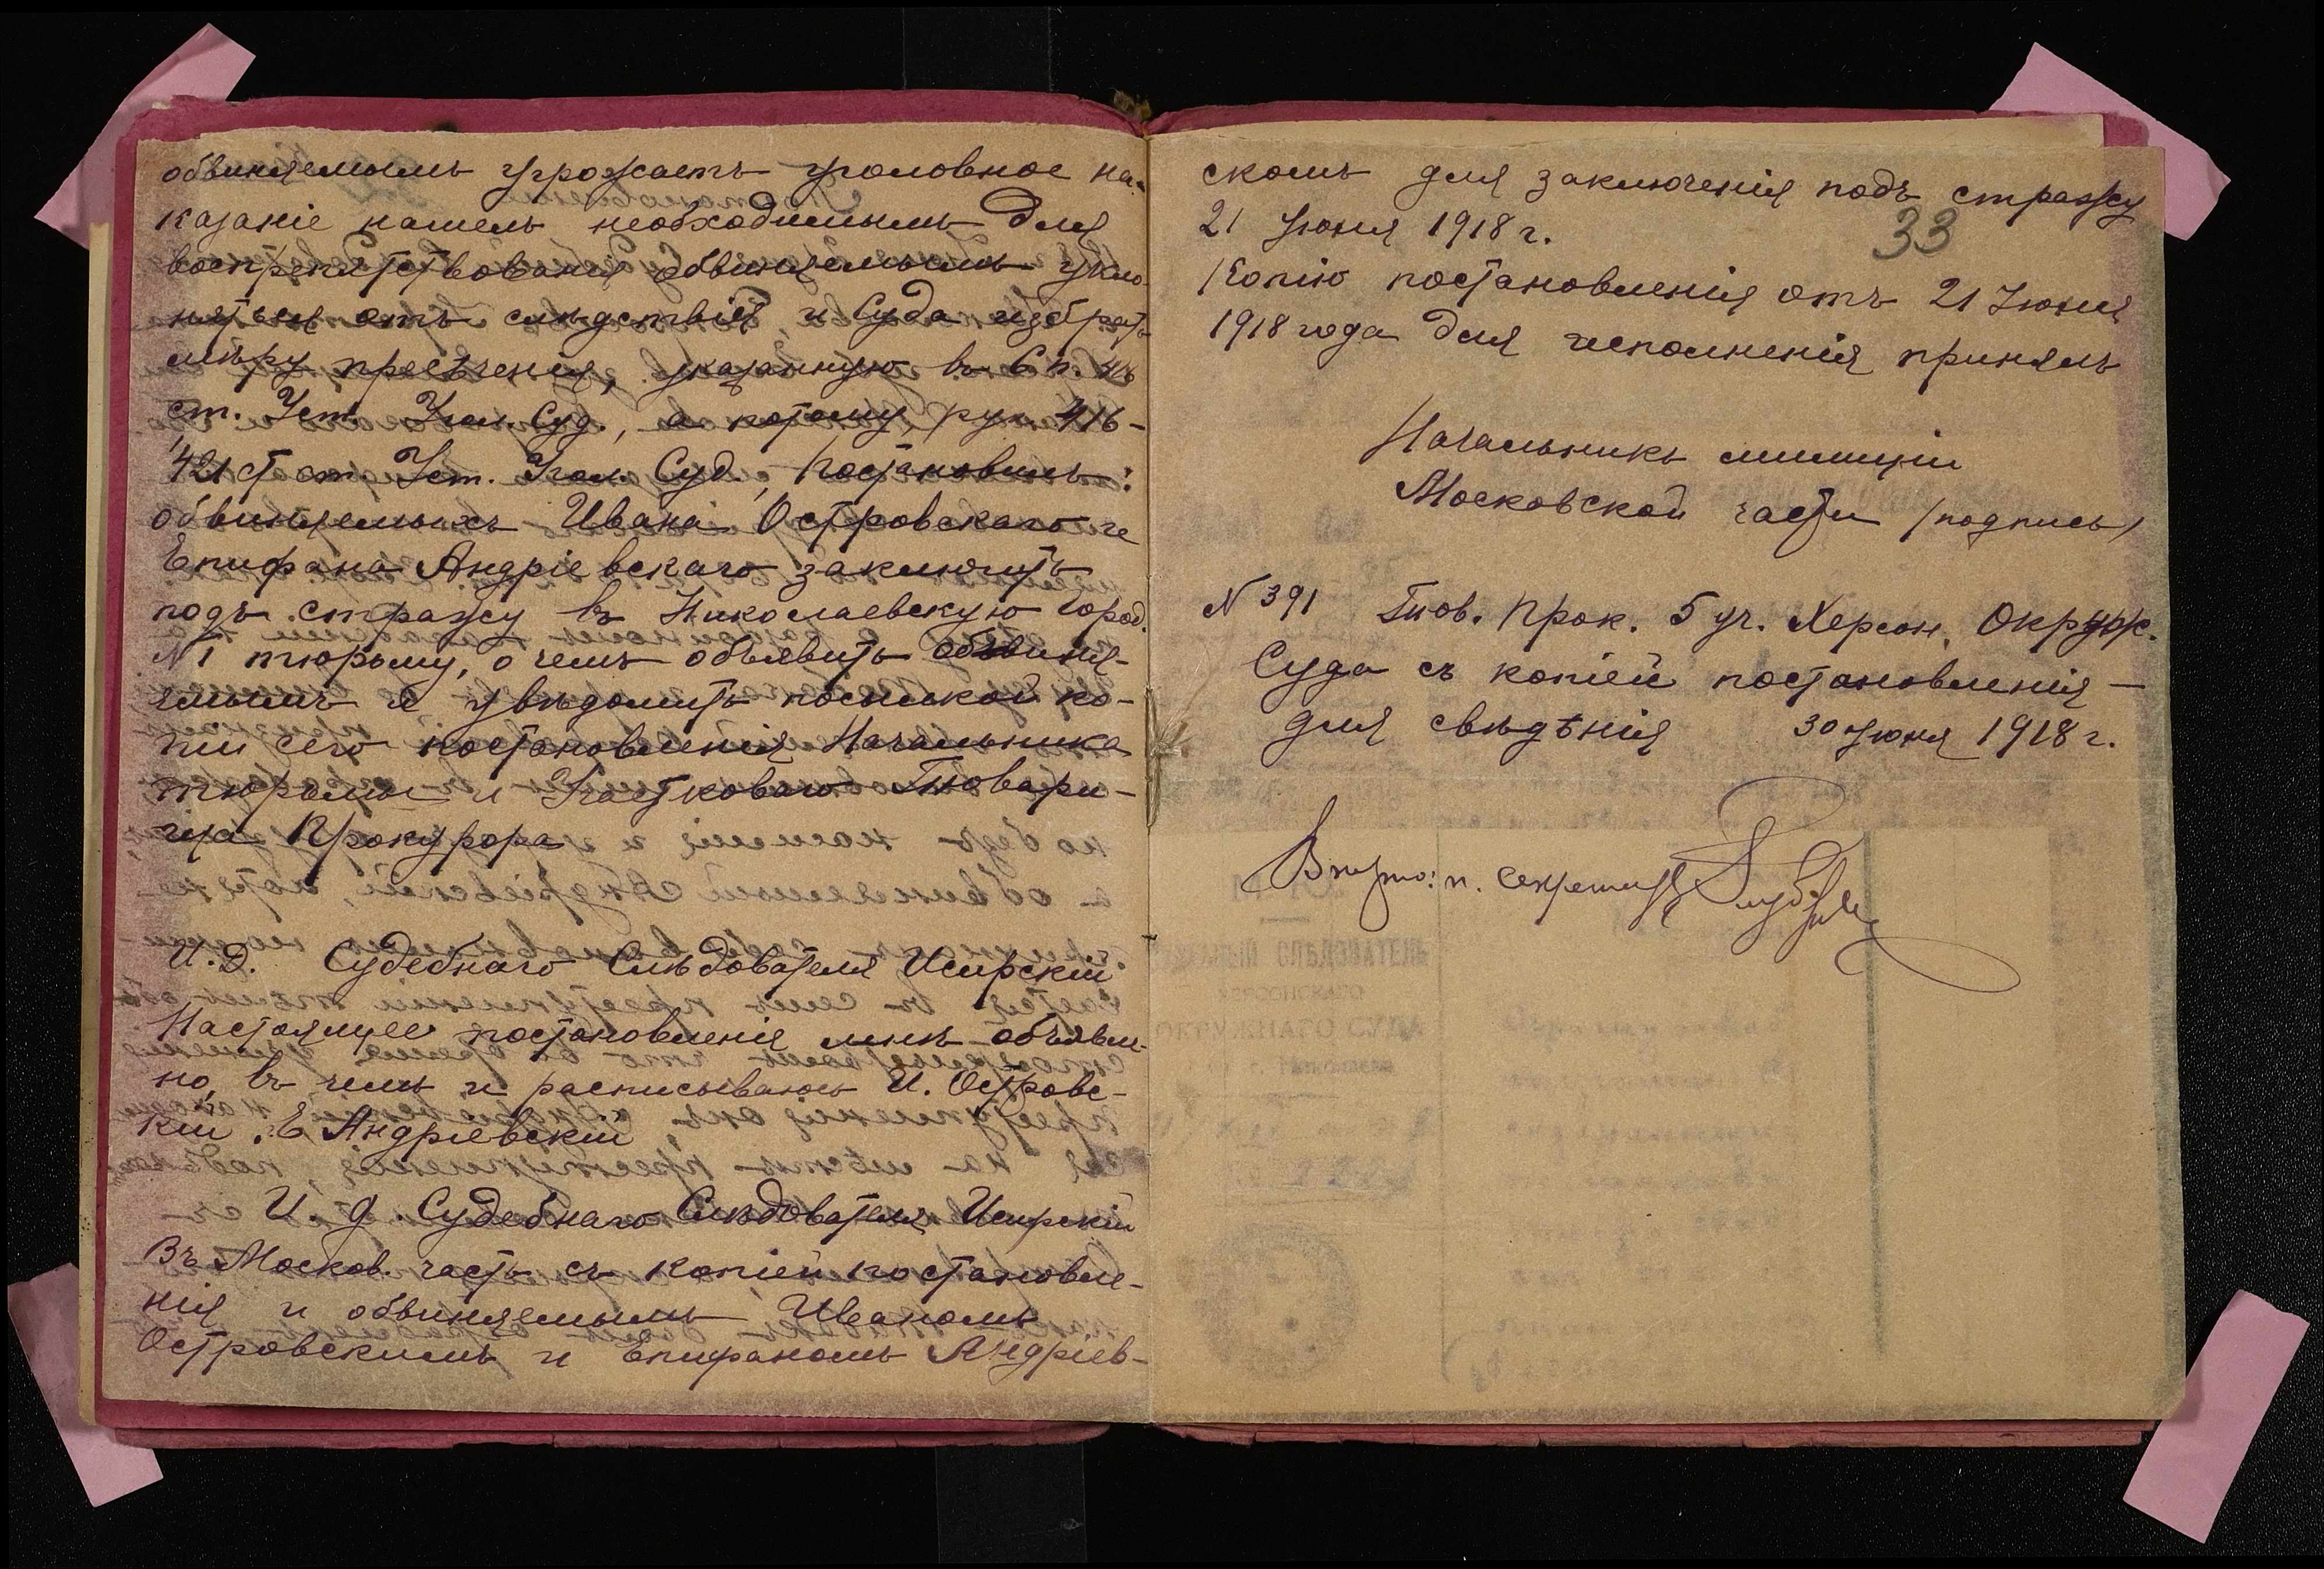 обвиняемымъ угрожаетъ уголовное на-
казаніе нашелъ необходимымъ для
воспрепятствованія обвиняемымъ укло-
няться отъ слѣдствія и Суда избрать
мѣру пресѣченія, указанную въ 6 п. 416
ст. Уст. Угол. Суд., а потому рук. 416-
421 ст. ст. Уст. Угол. Суд., Постановилъ:
обвиняемыхъ Ивана Островскаго и
Епифана Андріевскаго заключить
подъ стражу въ Николаевскую Город.
№ 1 тюрьму, о чемъ объявить обвиня-
емымъ и увѣдомить посылкой ко-
піи сего постановленія Начальника
тюрьмы и Участковаго Товари-
ща Прокурора
И. Д. Судебнаго Слѣдователя
Настоящее постановленія мнѣ объявле-
но, въ чемъ и расписываюсь И. Островс-
кій. Е Андріевскій
И. д. Судебнаго Слѣдователя
Въ Москов. часть съ копіей постановле-
нія и обвиняемымъ Иваномъ
Островскимъ и Епифаномъ Андріев-
скомъ для заключенія подъ стражу
21 Іюня 1918 г.
33
Копію постановленія отъ 21 Іюня
1918 года для исполненія принялъ
Начальникъ милиціи
Московской части (подпись)
№ 391 Тов. Прок. 5 уч. Херсон. Окруж.
Суда съ копіей постановленія —
для свѣдѣнія 30 Іюня 1918 г.
секретаря